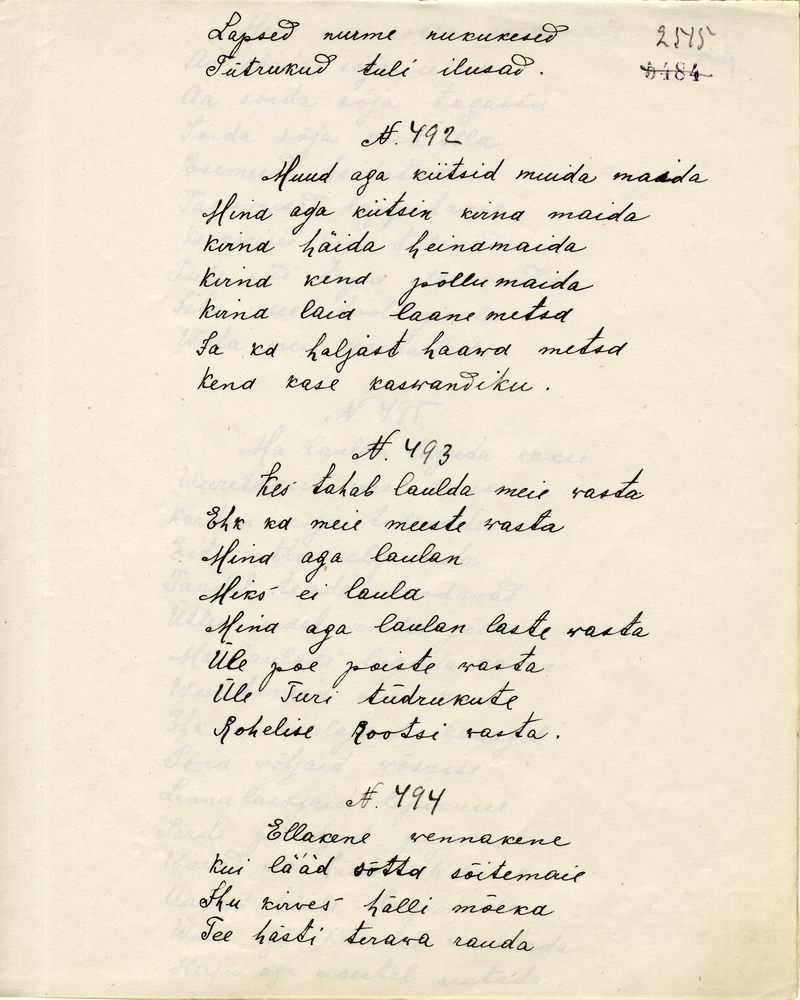 Lapsed nurme nukukesed
Tütrukud tuli ilusad.
2515
8484
N. 492
Muud aga kiitsid muida maida
Mind aga kiitsin kirnd maida
Kirnd häida heinamaida
Kirnd kend põllumaida
Kirnd laid laane metsa
Ja ka haljast haawa metsa
Kend kase kaswandiku.
N. 493
Kes tahab laulda meie wasta
Ehk ka meie meeste wasta
Mind aga laulan
Miks ei laula
Mind aga laulan laste wasta
Üle poe poiste wasta
Üle Turi tüdrukute
Rohelise Rootsi wasta.
N. 494
Ellakene wennakene
Kui lääd sõtta sõitemaie
Ihu kirwes hälli mõeka
Tee hästi terawa rauda